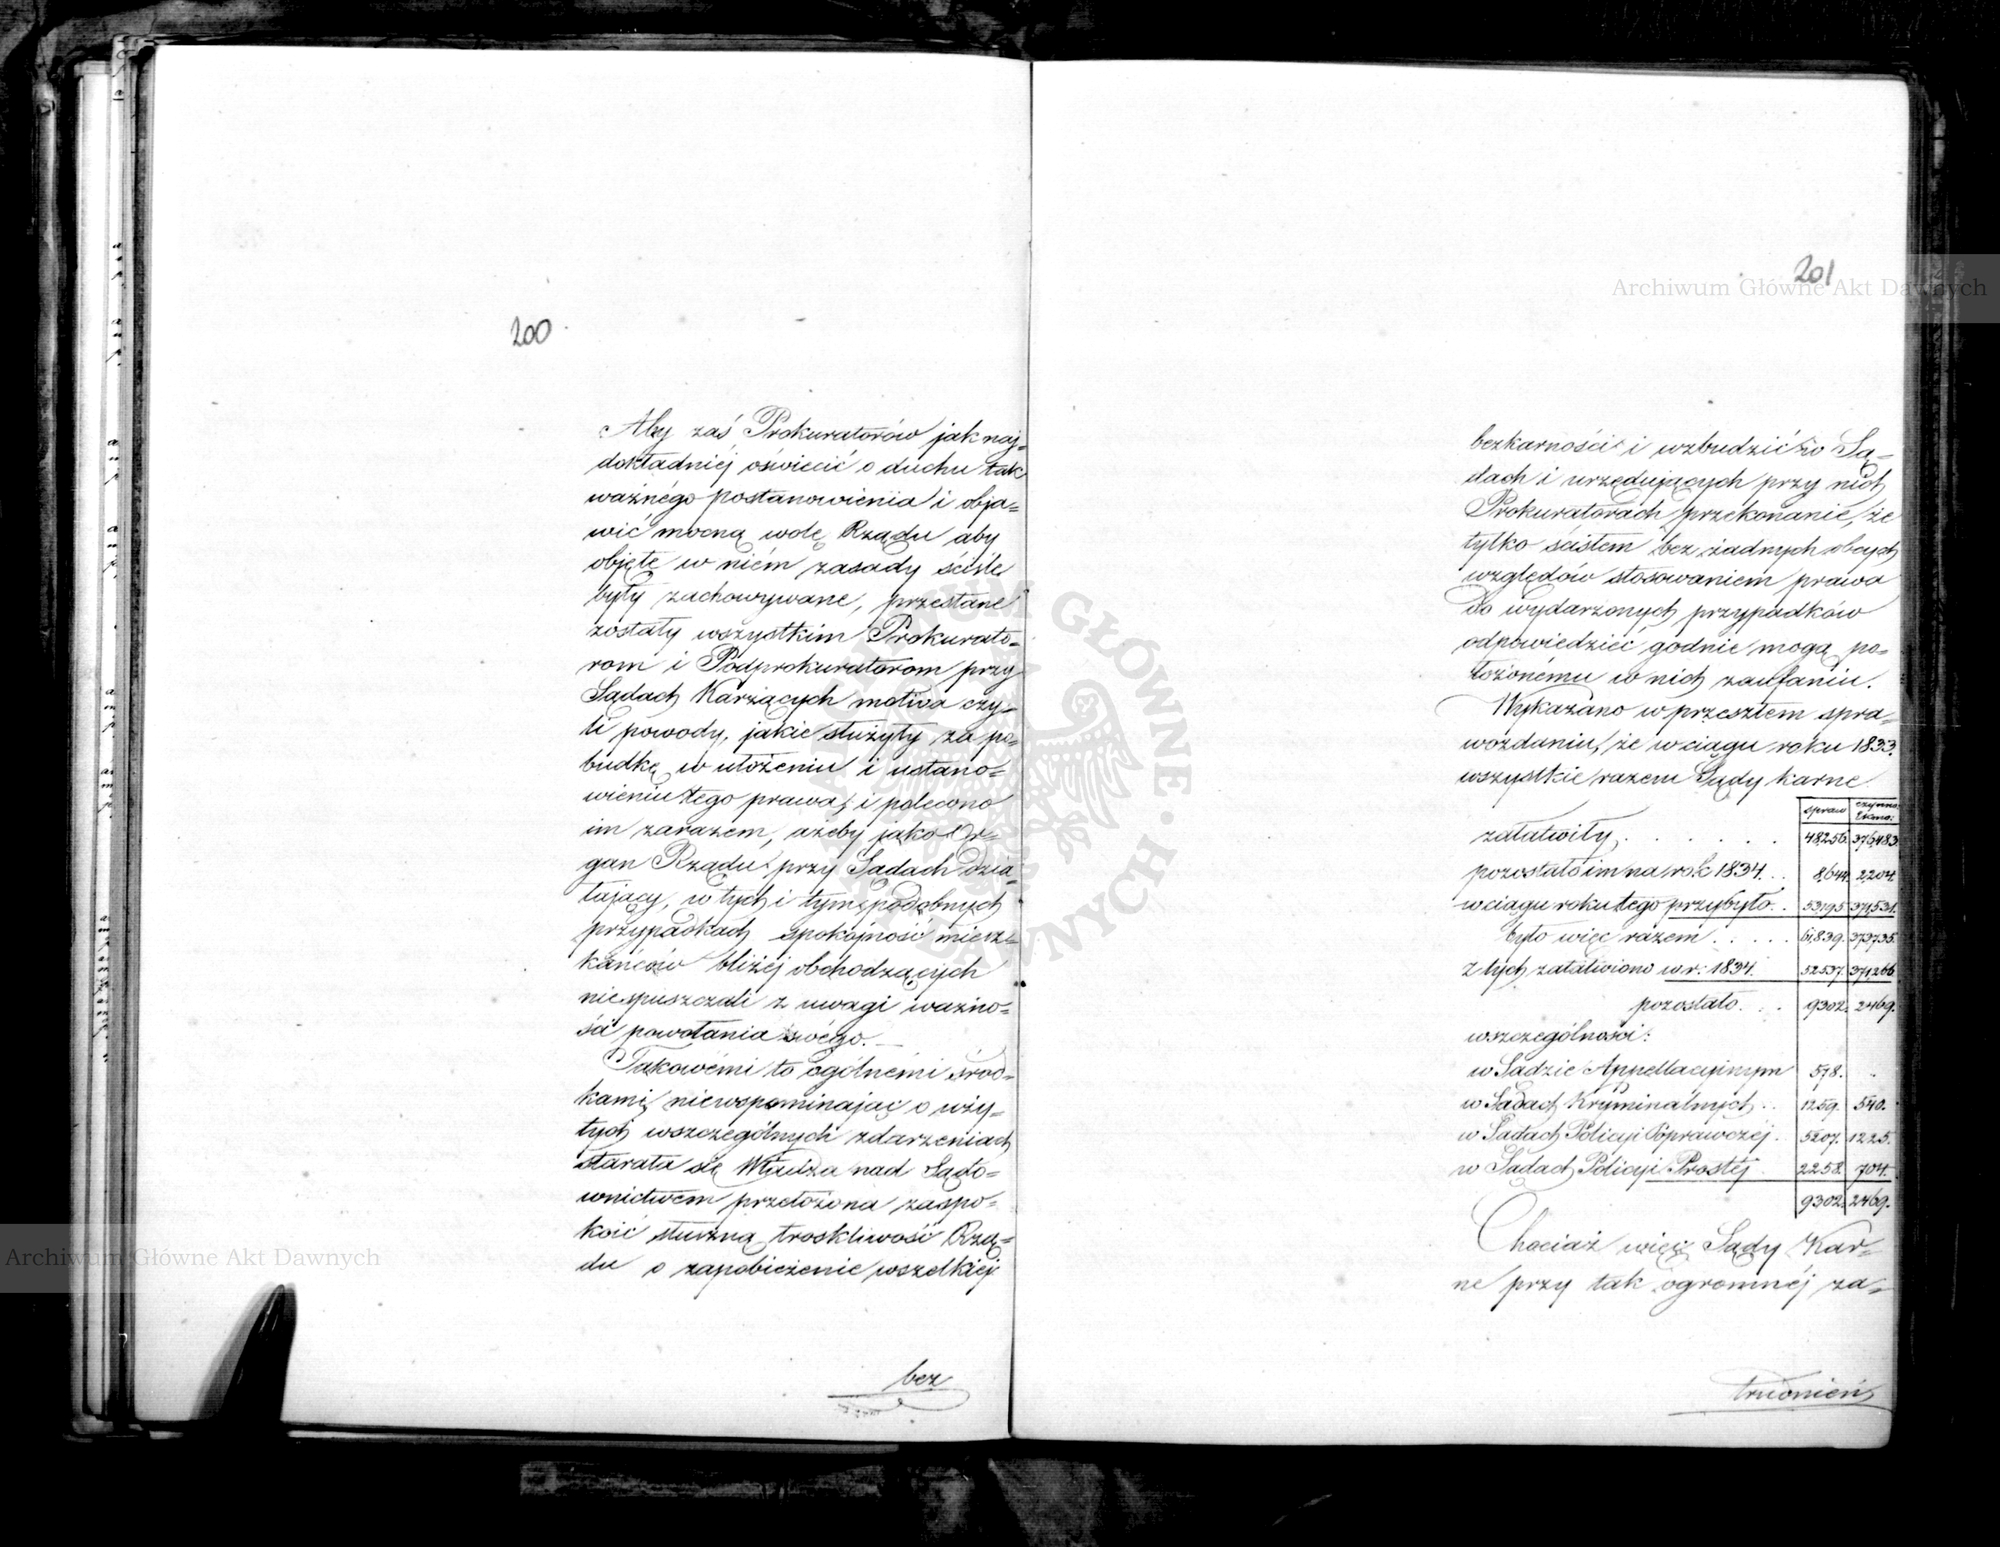 200
Aby zaś Prokuratorów jak naj=
dokładniej oświecić o duchu tak
ważnego postanowienia i obja=
wić mocną wolę Rządu aby
objęte w niém zasady ściśle
były zachowywane, przesłane
zostały wszystkim Prokurato=
rom i Podprokuratorom przy
Sądach Karzących motiva czy=
li powody, jakie służyły za po=
budkę w ułożeniu i ustano=
wieniu tego prawa, i polecono
im zarazem, ażeby jako Or=
gan Rządu przy Sądach dzia=
łający, w tych i tym podobnych
przypadkach spokojność miesz=
kańców bliżéj obchodzących
niespuszczali z uwagi ważno=
ści powołania swégo.
Takowémi to ogólnémi środ=
kami, niewspominając o uży=
tych w szczególnych zdarzeniach
starała się Władza nad Sądo=
wnictwem przełożona zaspo=
koić słuszną troskliwość Rzą=
du o zapobieżenie wszelkiéj
bez
201
bezkarności i wzbudzić w Są=
dach i urzędujących przy nich
Prokuratorach przekonanie, że
tylko scisłem bez żadnych obcych
względów stosowaniem prawa
do wydarzonych przypadków
odpowiedzieć godnie mogą po=
łożonému w nich zaufaniu.
Wykazano w przeszłem spra=
wozdaniu, że w ciągu roku 1833.
wszystkie razem Sądy karne
spraw czynno:
załatwiły, . . . . . . 48,256. 376,483.
pozostało im na rok 1834. . . 8,644. 2,204.
w ciągu roku tego przybyło . . 53,195. 371,531.
było więc razem . . . . . 61,839. 373,735.
z tych załatwiono w r: 1834. 52,537. 371,266.
pozostało. . . 9302. 2469.
w szczególności:
w Sądzie Appellacyinym 578. .
w Sądach Kryminalnych . . 1259. 540.
w Sądach Policyi Poprawczéj . 5207. 1225.
w Sądach Policyi Prostéj . 2258. 704.
9302. 2469.
Chociaż więc Sądy Kar=
ne przy tak ogromnéj za=
trudnień
Archiwum Główne Akt Dawnych
Archiwum Główne Akt Dawnych